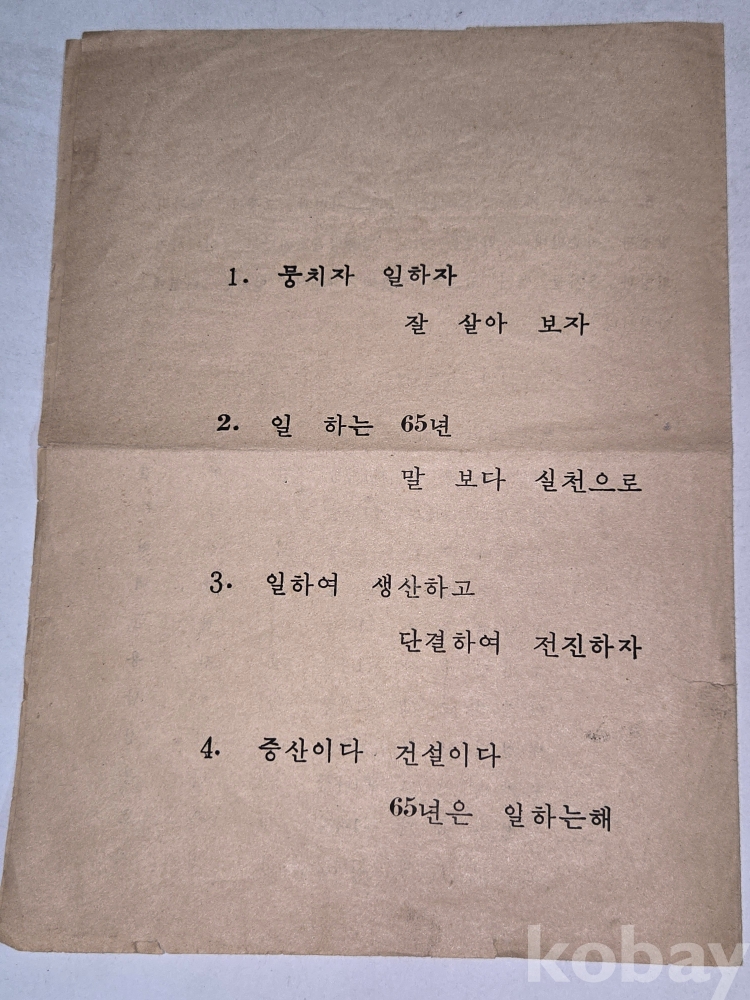 1. 뭉치자 일하자
잘 살아 보자
2. 일 하는 65년
말 보다 실천으로
3. 일하여 생산하고
단결하여 전진하자
4. 중산이다 건설이다
65년은 일하는해
kobay